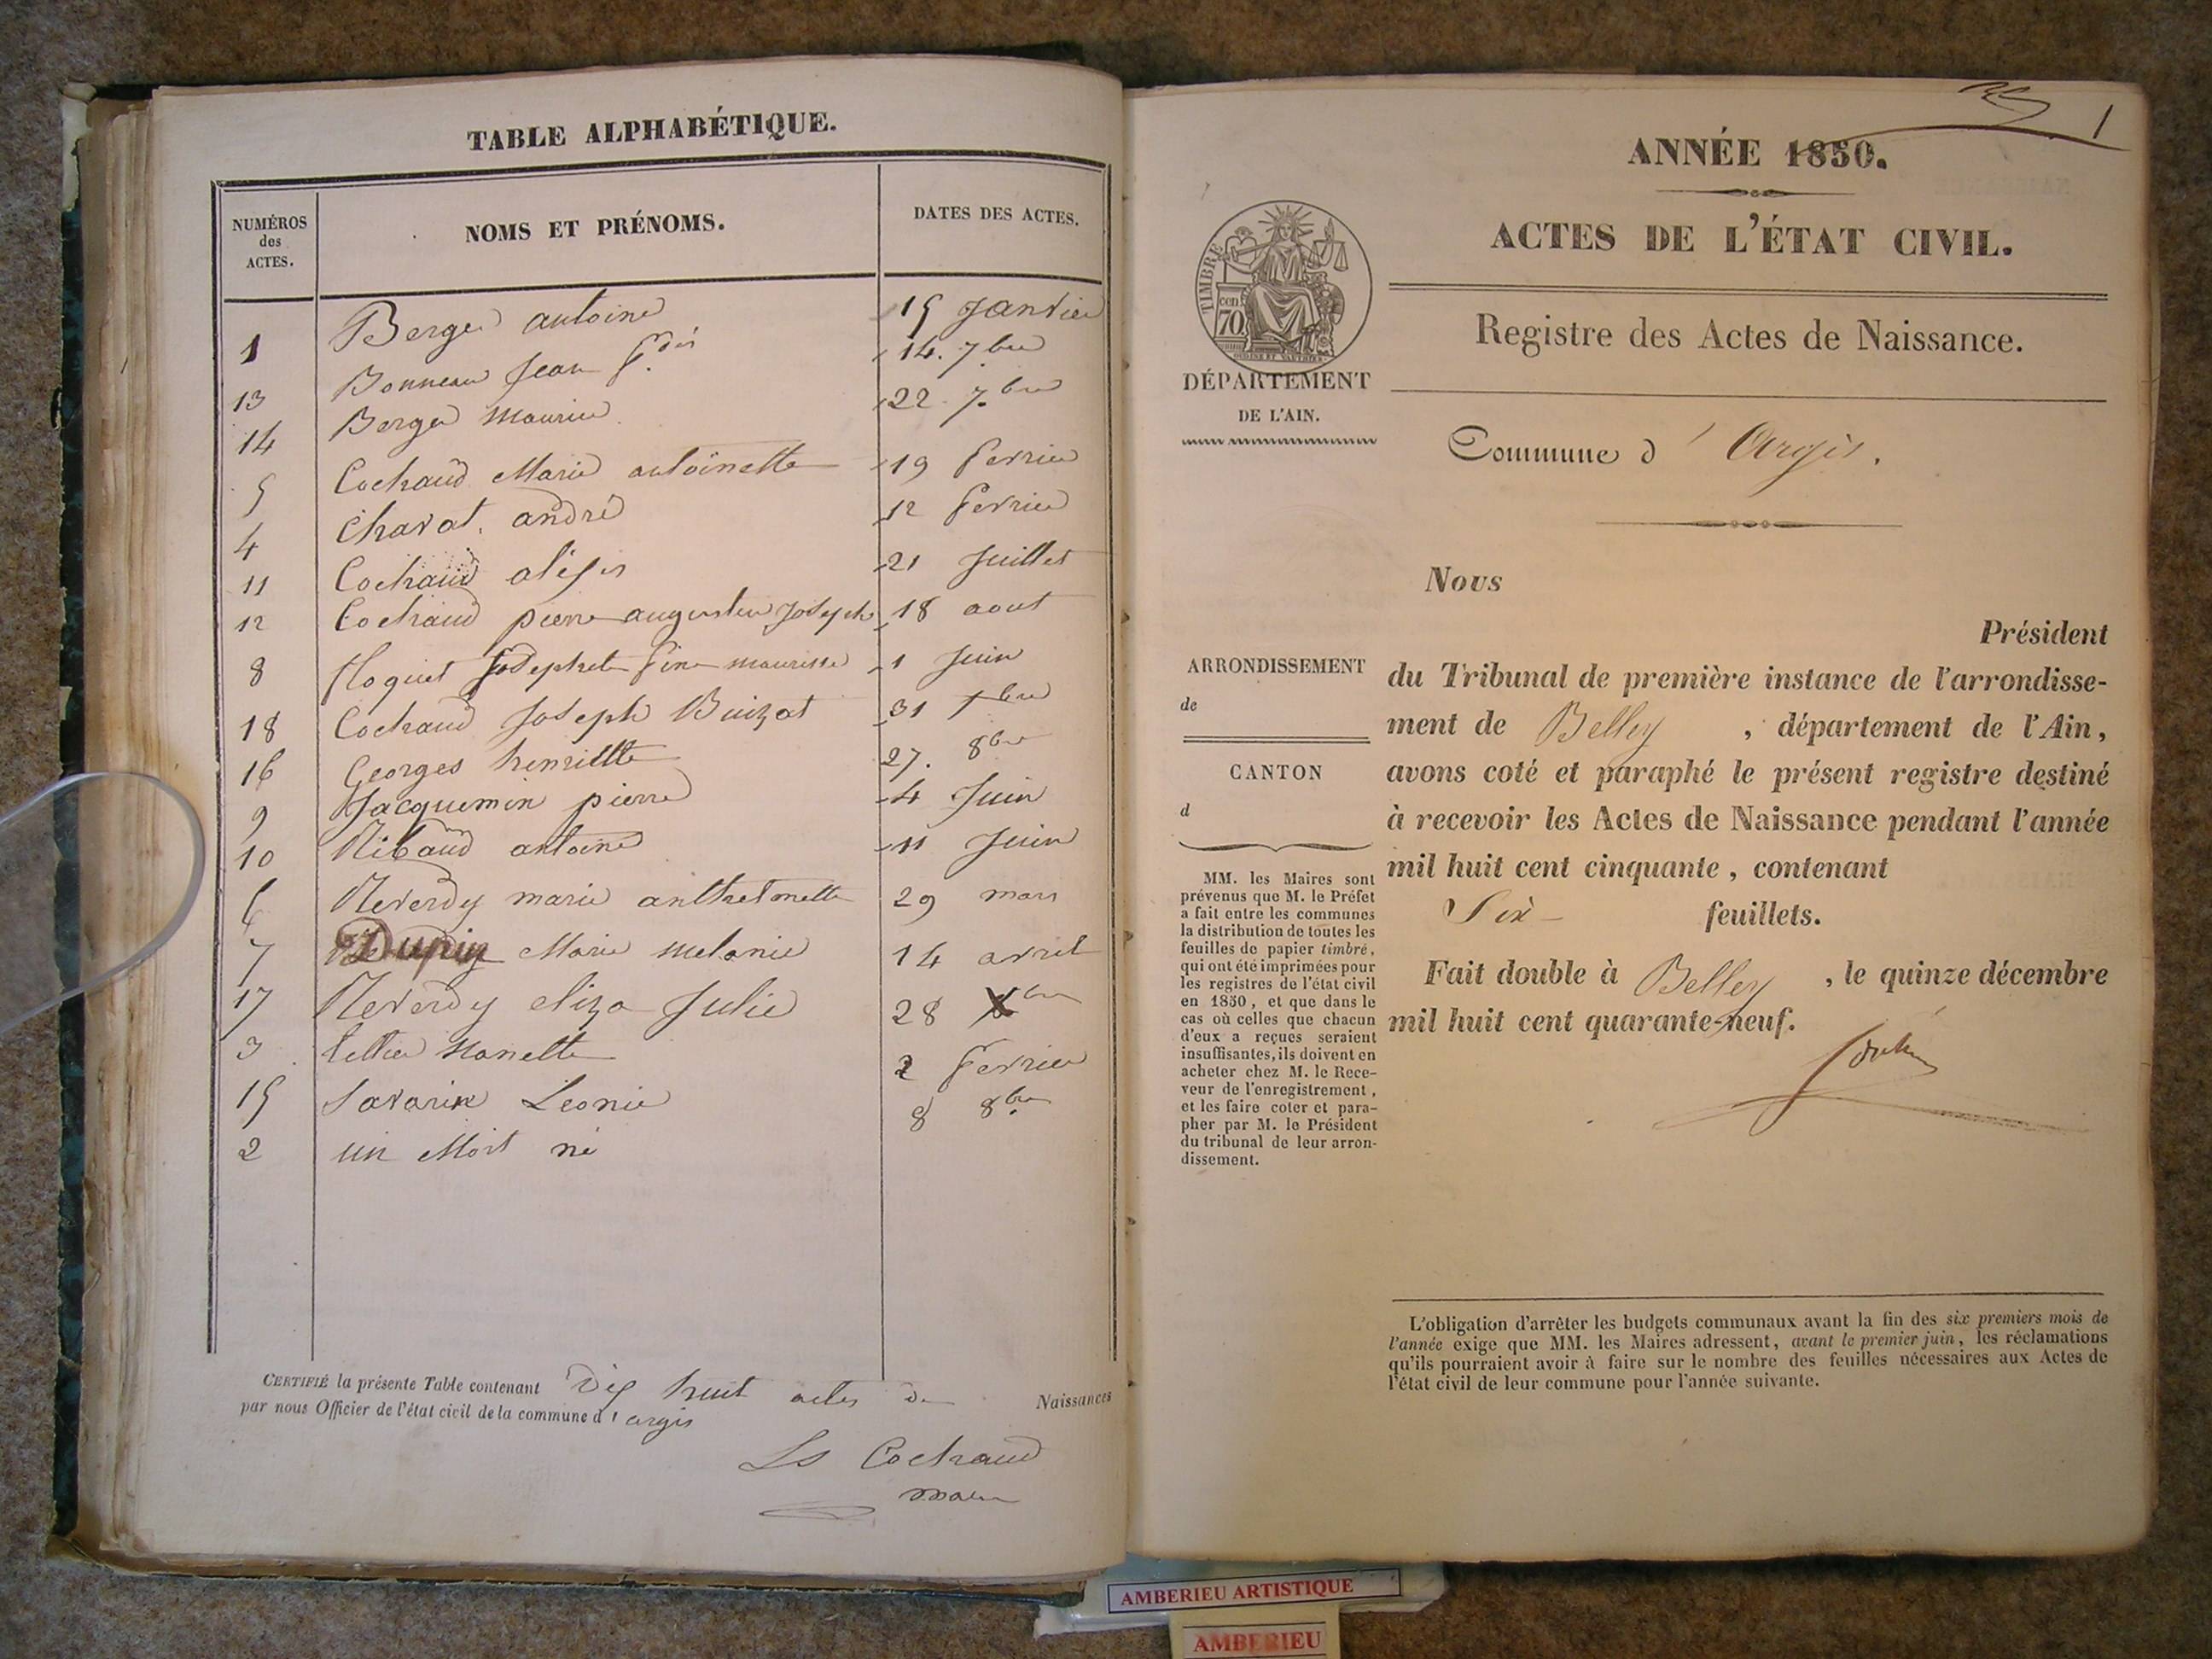 TABLE ALPHABÉTIQUE.
NUMÉROS des ACTES. NOMS ET PRÉNOMS. DATES DES ACTES.
1 Berger antoine 15 Janvier
13 Bonneau Jean 14. 7bre
14 Berger Maurice 22 7bre
5 Cochaud Marie antoinette 19 fevrier
4 Charat andré 12 fevrier
11 Cochaud alésis 21 Juillet
12 Cochaud pierre augustin Joseph 18 aout
8 floquet fine maurisse 1 Juin
18 Cochaud Joseph Buizat 31
16 Georges henriette 27. 8bre
9 Jacquemin pierre 4 Juin
10 Ribaud antoine 11 Juin
6 Reverdy marie 29 mars
7 Dupuy Marie melanie 14 avril
17 Reverdy eliza Julie 28
3 tettier Nanette 2 fevrier
15 Savarin Leonie 8 8bre
2 un Mort né
CERTIFIÉ la présente Table contenant Dix huit actes de Naissances
par nous Officier de l'état civil de la commune d'argis
Ls Cochaud
maire
1
ANNÉE 1850.
ACTES DE L'ÉTAT CIVIL.
Registre des Actes de Naissance.
TIMBRE
cen
70
DÉPARTEMENT
DE L'AIN.
Commune d' Argis.
Nous
Président
du Tribunal de première instance de l'arrondisse-
ment de Belley, département de l'Ain,
avons coté et paraphé le présent registre destiné
à recevoir les Actes de Naissance pendant l'année
mil huit cent cinquante, contenant
Six feuillets.
Fait double à Belley, le quinze décembre
mil huit cent quarante-neuf.
ARRONDISSEMENT
de
CANTON
d
MM. les Maires sont
prévenus que M. le Préfet
a fait entre les communes
la distribution de toutes les
feuilles de papier timbré,
qui ont été imprimées pour
les registres de l'état civil
en 1850, et que dans le
cas où celles que chacun
d'eux a reçues seraient
insuffisantes, ils doivent en
acheter chez M. le Rece-
veur de l'enregistrement,
et les faire coter et para-
pher par M. le Président
du tribunal de leur arron-
dissement.
L'obligation d'arrêter les budgets communaux avant la fin des six premiers mois de
l'année exige que MM. les Maires adressent, avant le premier juin, les réclamations
qu'ils pourraient avoir à faire sur le nombre des feuilles nécessaires aux Actes de
l'état civil de leur commune pour l'année suivante.
AMBERIEU ARTISTIQUE
AMBERIEU